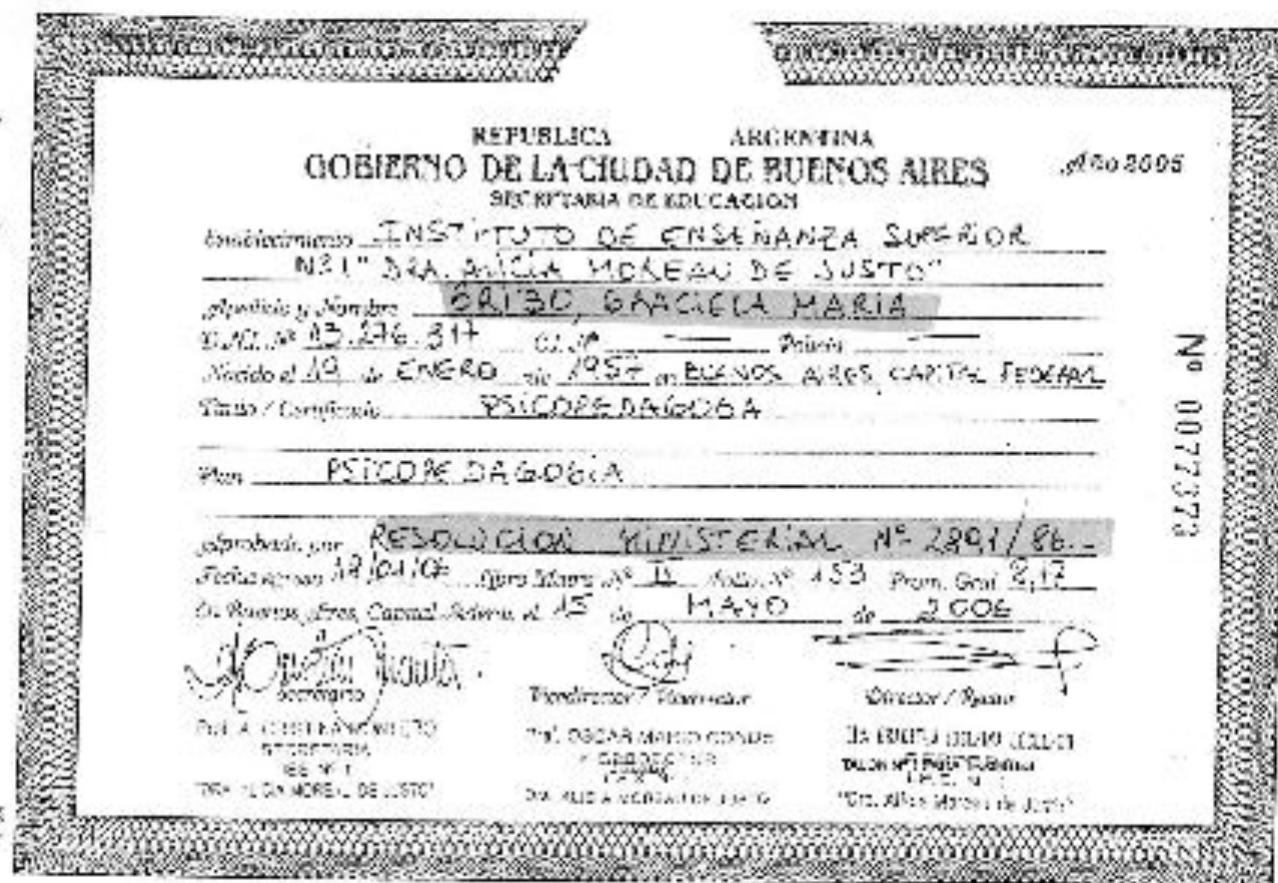 REPUBLICA ARGENTINA
GOBIERNO DE LA CIUDAD DE BUENOS AIRES
Año 2005
SECRETARIA DE EDUCACION
Establecimiento INSTITUTO DE ENSEÑANZA SUPERIOR
Nº1 "DRA. ALICIA MOREAU DE JUSTO"
Apellido y Nombre GRACIELA MARIA
D.N.I. Nº 13.276.817 C.I. Nº Policía
Nacido el 19 de ENERO de 1957 en BUENOS AIRES CAPITAL FEDERAL
Título / Certificado PSICOPEDAGOGA
Plan PSICOPEDAGOGIA
Aprobado por RESOLUCION MINISTERIAL Nº 2891/86.-
Fecha egreso Libro Matriz Nº Folio Nº 153 Prom. Gral 8,17
En Buenos Aires, Capital Federal, el 15 de MAYO de 2006
Secretario
Vicedirector / Vicerrector
Director / Rector
Prof. OSCAR MARIO CONDE
SECRETARIA
"DRA. ALICIA MOREAU DE JUSTO"
DRA. ALICIA MOREAU DE JUSTO
"Dra. Alicia Moreau de Justo"
Nº 0077373